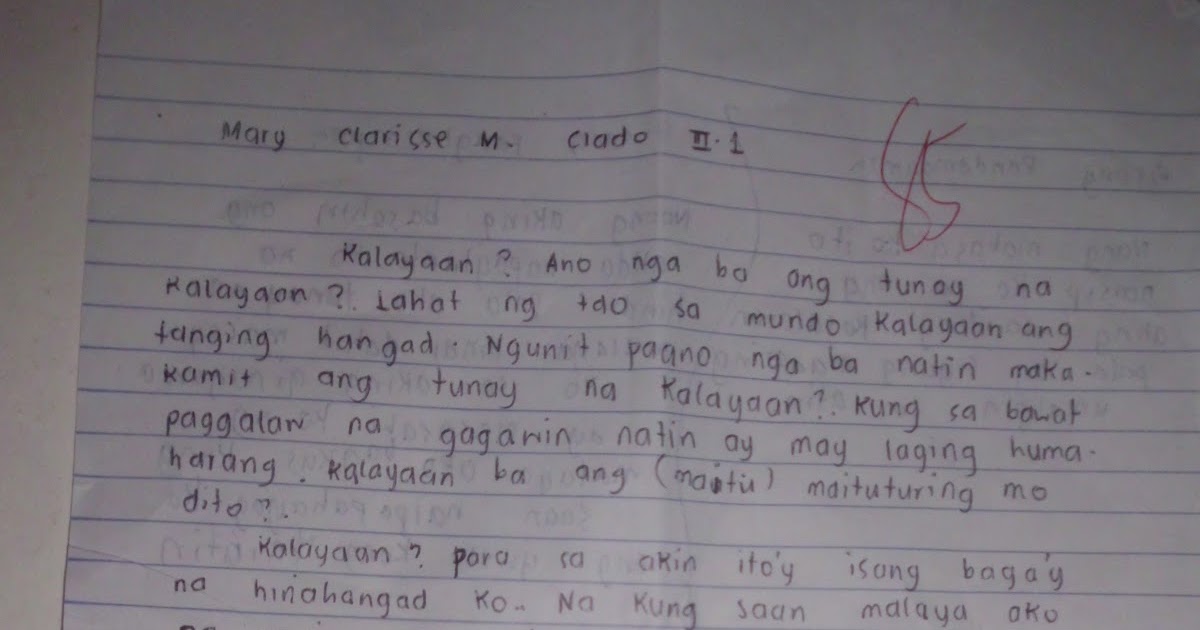 Mary Clarisse M. Clado II.1
85
Kalayaan? Ano nga ba ang tunay na
Kalayaan?. Lahat ng tao sa mundo Kalayaan ang
tanging hangad. Ngunit paano nga ba natin maka-
kamit ang tunay na Kalayaan?. Kung sa bawat
paggalaw na gagawin natin ay may laging huma-
harang. Kalayaan ba ang (maitu) maituturing mo
dito?.
Kalayaan? para sa akin ito'y isang baga'y
na hinahangad ko.. Na kung saan malaya ako